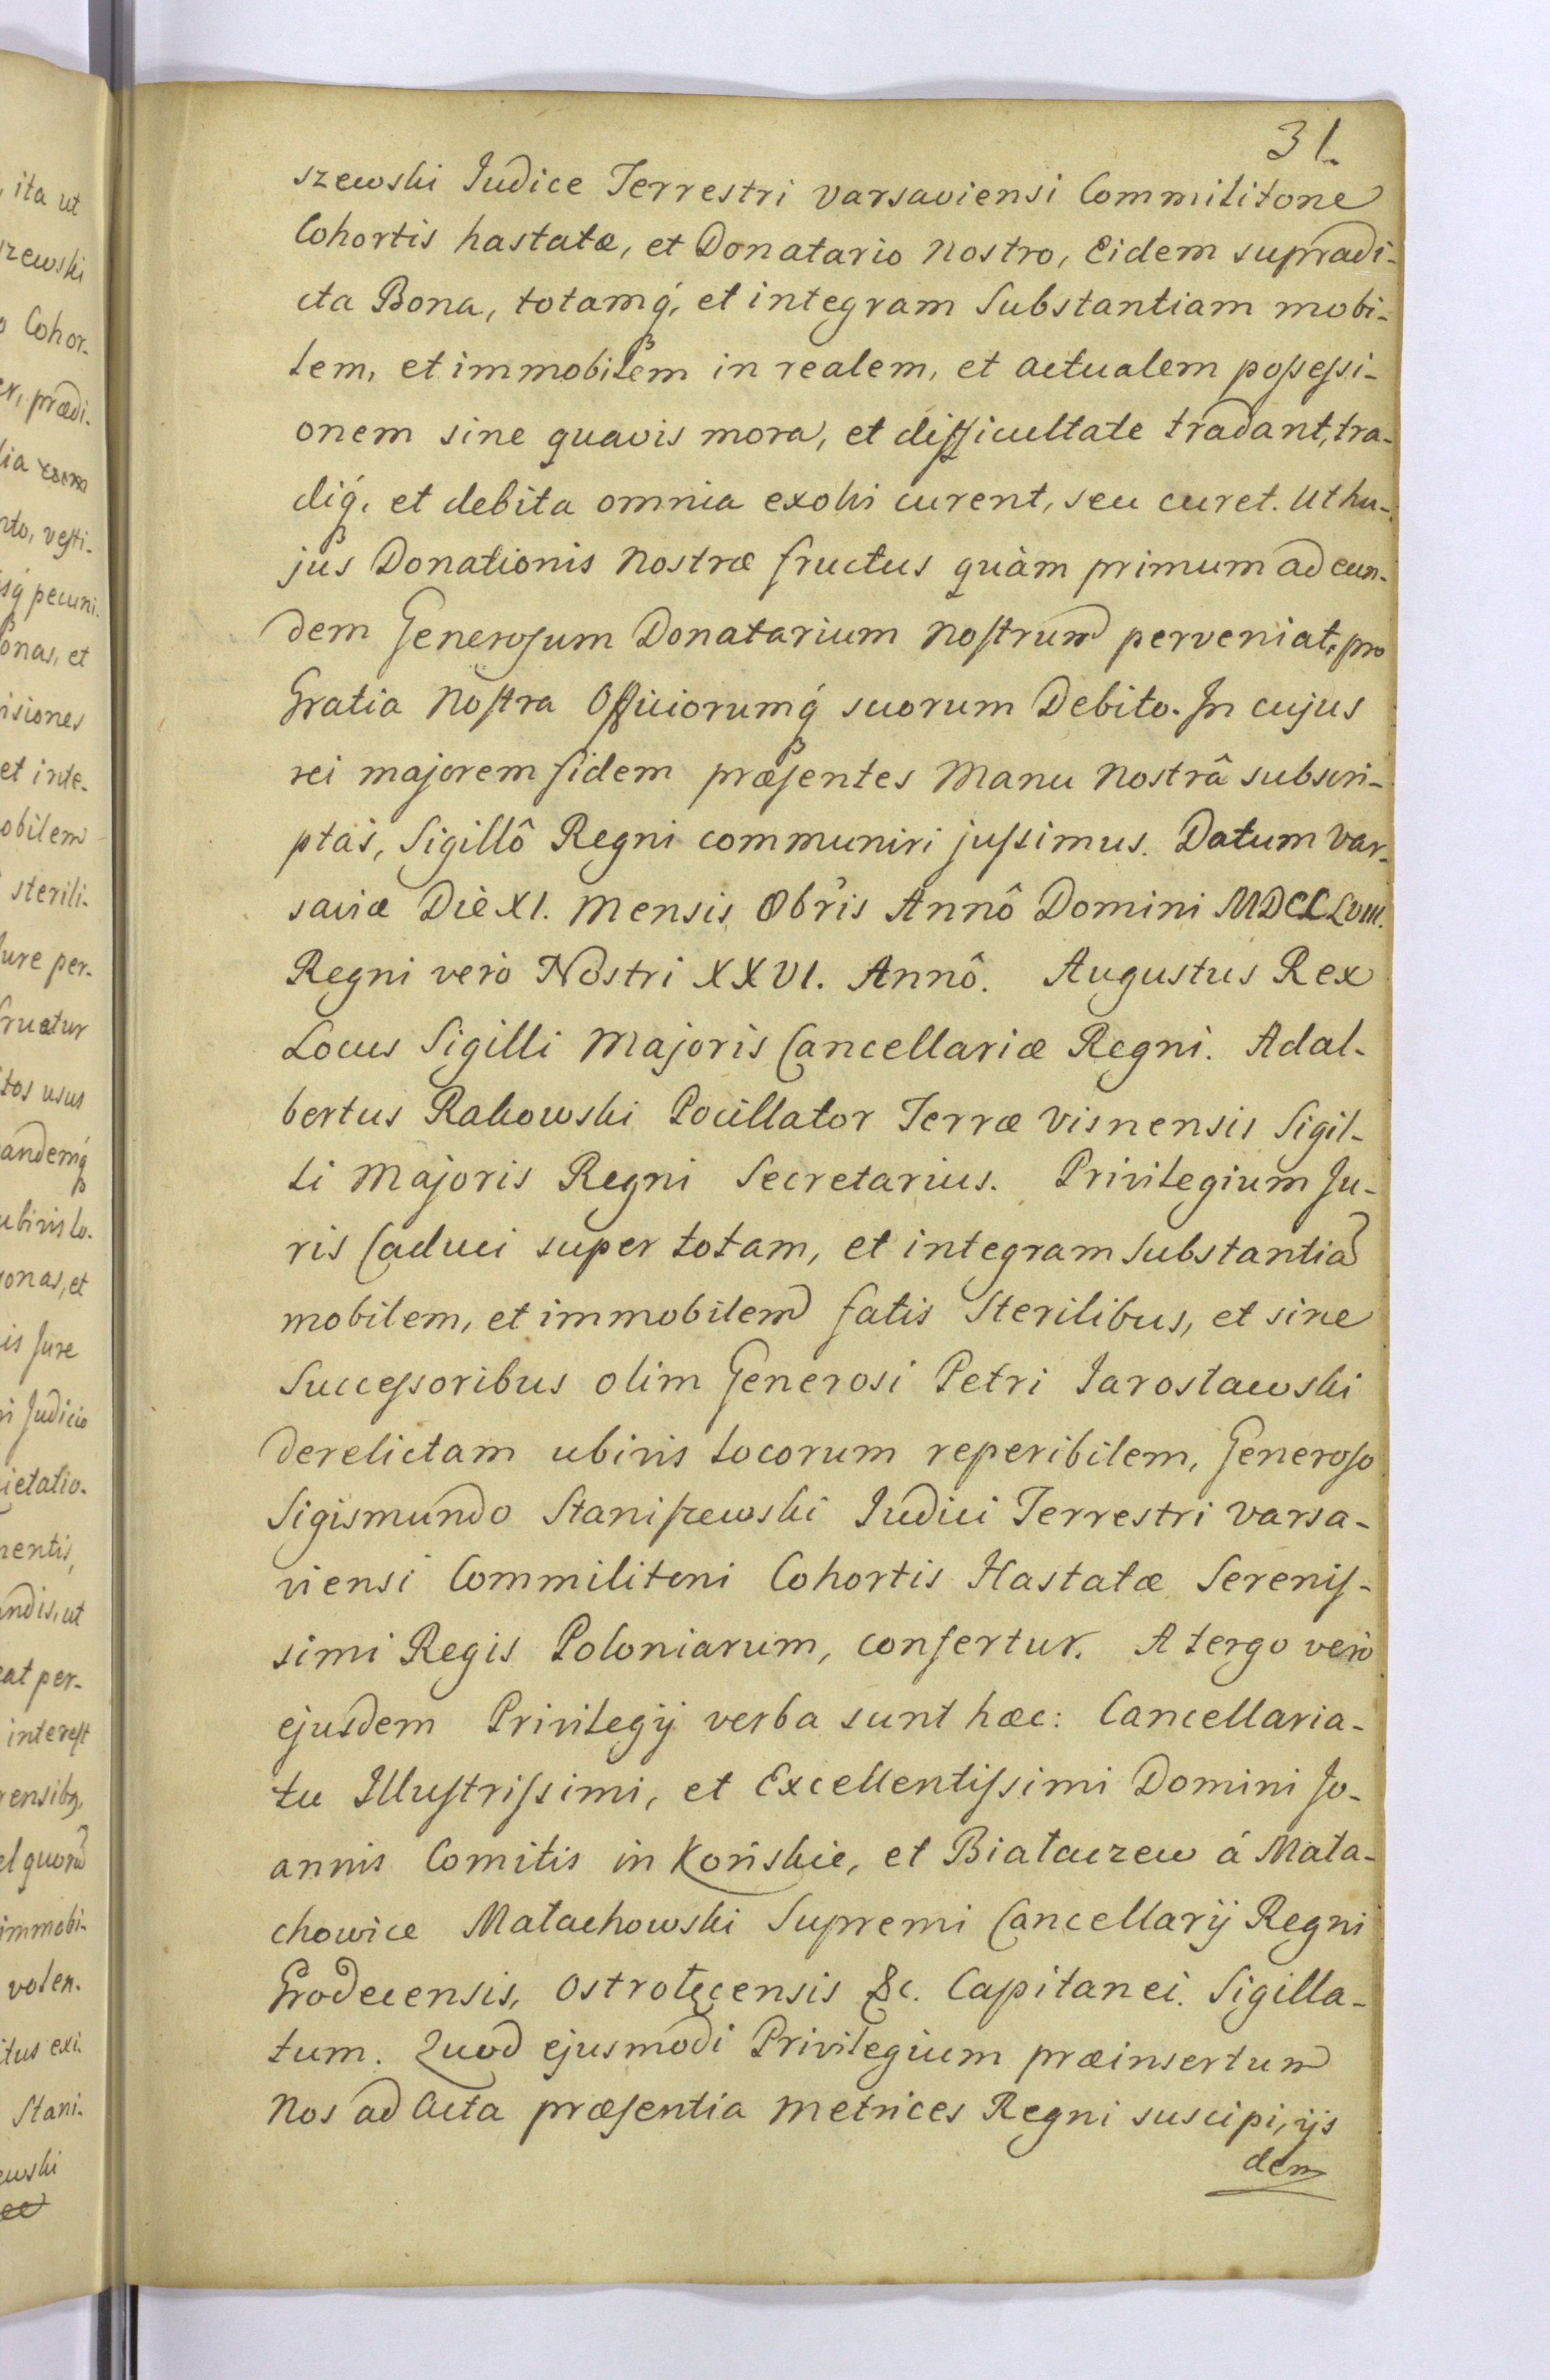 31.
szewski Iudice Terrestri Varsaviensi Commilitone
Cohortis hastatæ, et Donatario Nostro, Eidem supradi-
cta Bona, totamq́, et integram Substantiam mobi-
lem, et immobilem in realem, et actualem poſseſsi-
onem sine quavis mora, et difficultate tradant, tra-
diq́, et debita omnia exolvi curent, seu curet. Ut hu-
jus Donationis Nostræ fructus quàm primum ad eun-
dem Generoſum Donatarium Noſtrum perveniat, pro
Gratia Noſtra Officiorumq́ suorum Debito. In cujus
rei majorem fidem præſentes Manu Nostrâ subscri-
ptas, Sigillô Regni communiri juſsimus. Datum Var-
saviæ Diè XI. Mensis 8bris Annô Domini MDCCLVIII.
Regni verò Nostri XXVI. Annô. Augustus Rex
Locus Sigilli Majoris Cancellariæ Regni. Adal-
bertus Rakowski Pocillator Terræ Visnensis Sigil-
li Majoris Regni Secretarius. Privilegium Ju-
ris Caduci super totam, et integram Substantiā
mobilem, et immobilem fatis Sterilibus, et sine
Succeſsoribus olim Generosi Petri Iarosławski
derelictam ubivis locorum reperibilem, Generoſo
Sigismundo Staniſzewski Iudici Terrestri Varsa-
viensi Commilitoni Cohortis Hastatæ Sereniſ-
simi Regis Poloniarum, confertur. A tergo verò
ejusdem Privilegij verba sunt hæc: Cancellaria-
tu Illuſtriſsimi, et Excellentiſsimi Domini Jo-
annis Comitis in Końskie, et Białaczew á Mała-
chowice Małachowski Supremi Cancellarij Regni
Grodecensis, Ostrołęcensis &c. Capitanei. Sigilla-
tum. Quod ejusmodi Privilegium præinsertum
Nos ad Acta præſentia Metrices Regni suscipi, ijs
dem
, ita ut
szewski
o Cohor-
prædi-
veſti-
pecuni-
onas, et
isiones
et inte-
obilem
sterili-
Jure per-
fruatur
tos usus
andemq́
ubivis lo-
onas, et
is Jure
Judicio
ietatio-
mentis,
andis, ut
eat per-
intereſt
rensibq,
el quorū
immobi-
volen-
itus exi-
Stani-
ewski